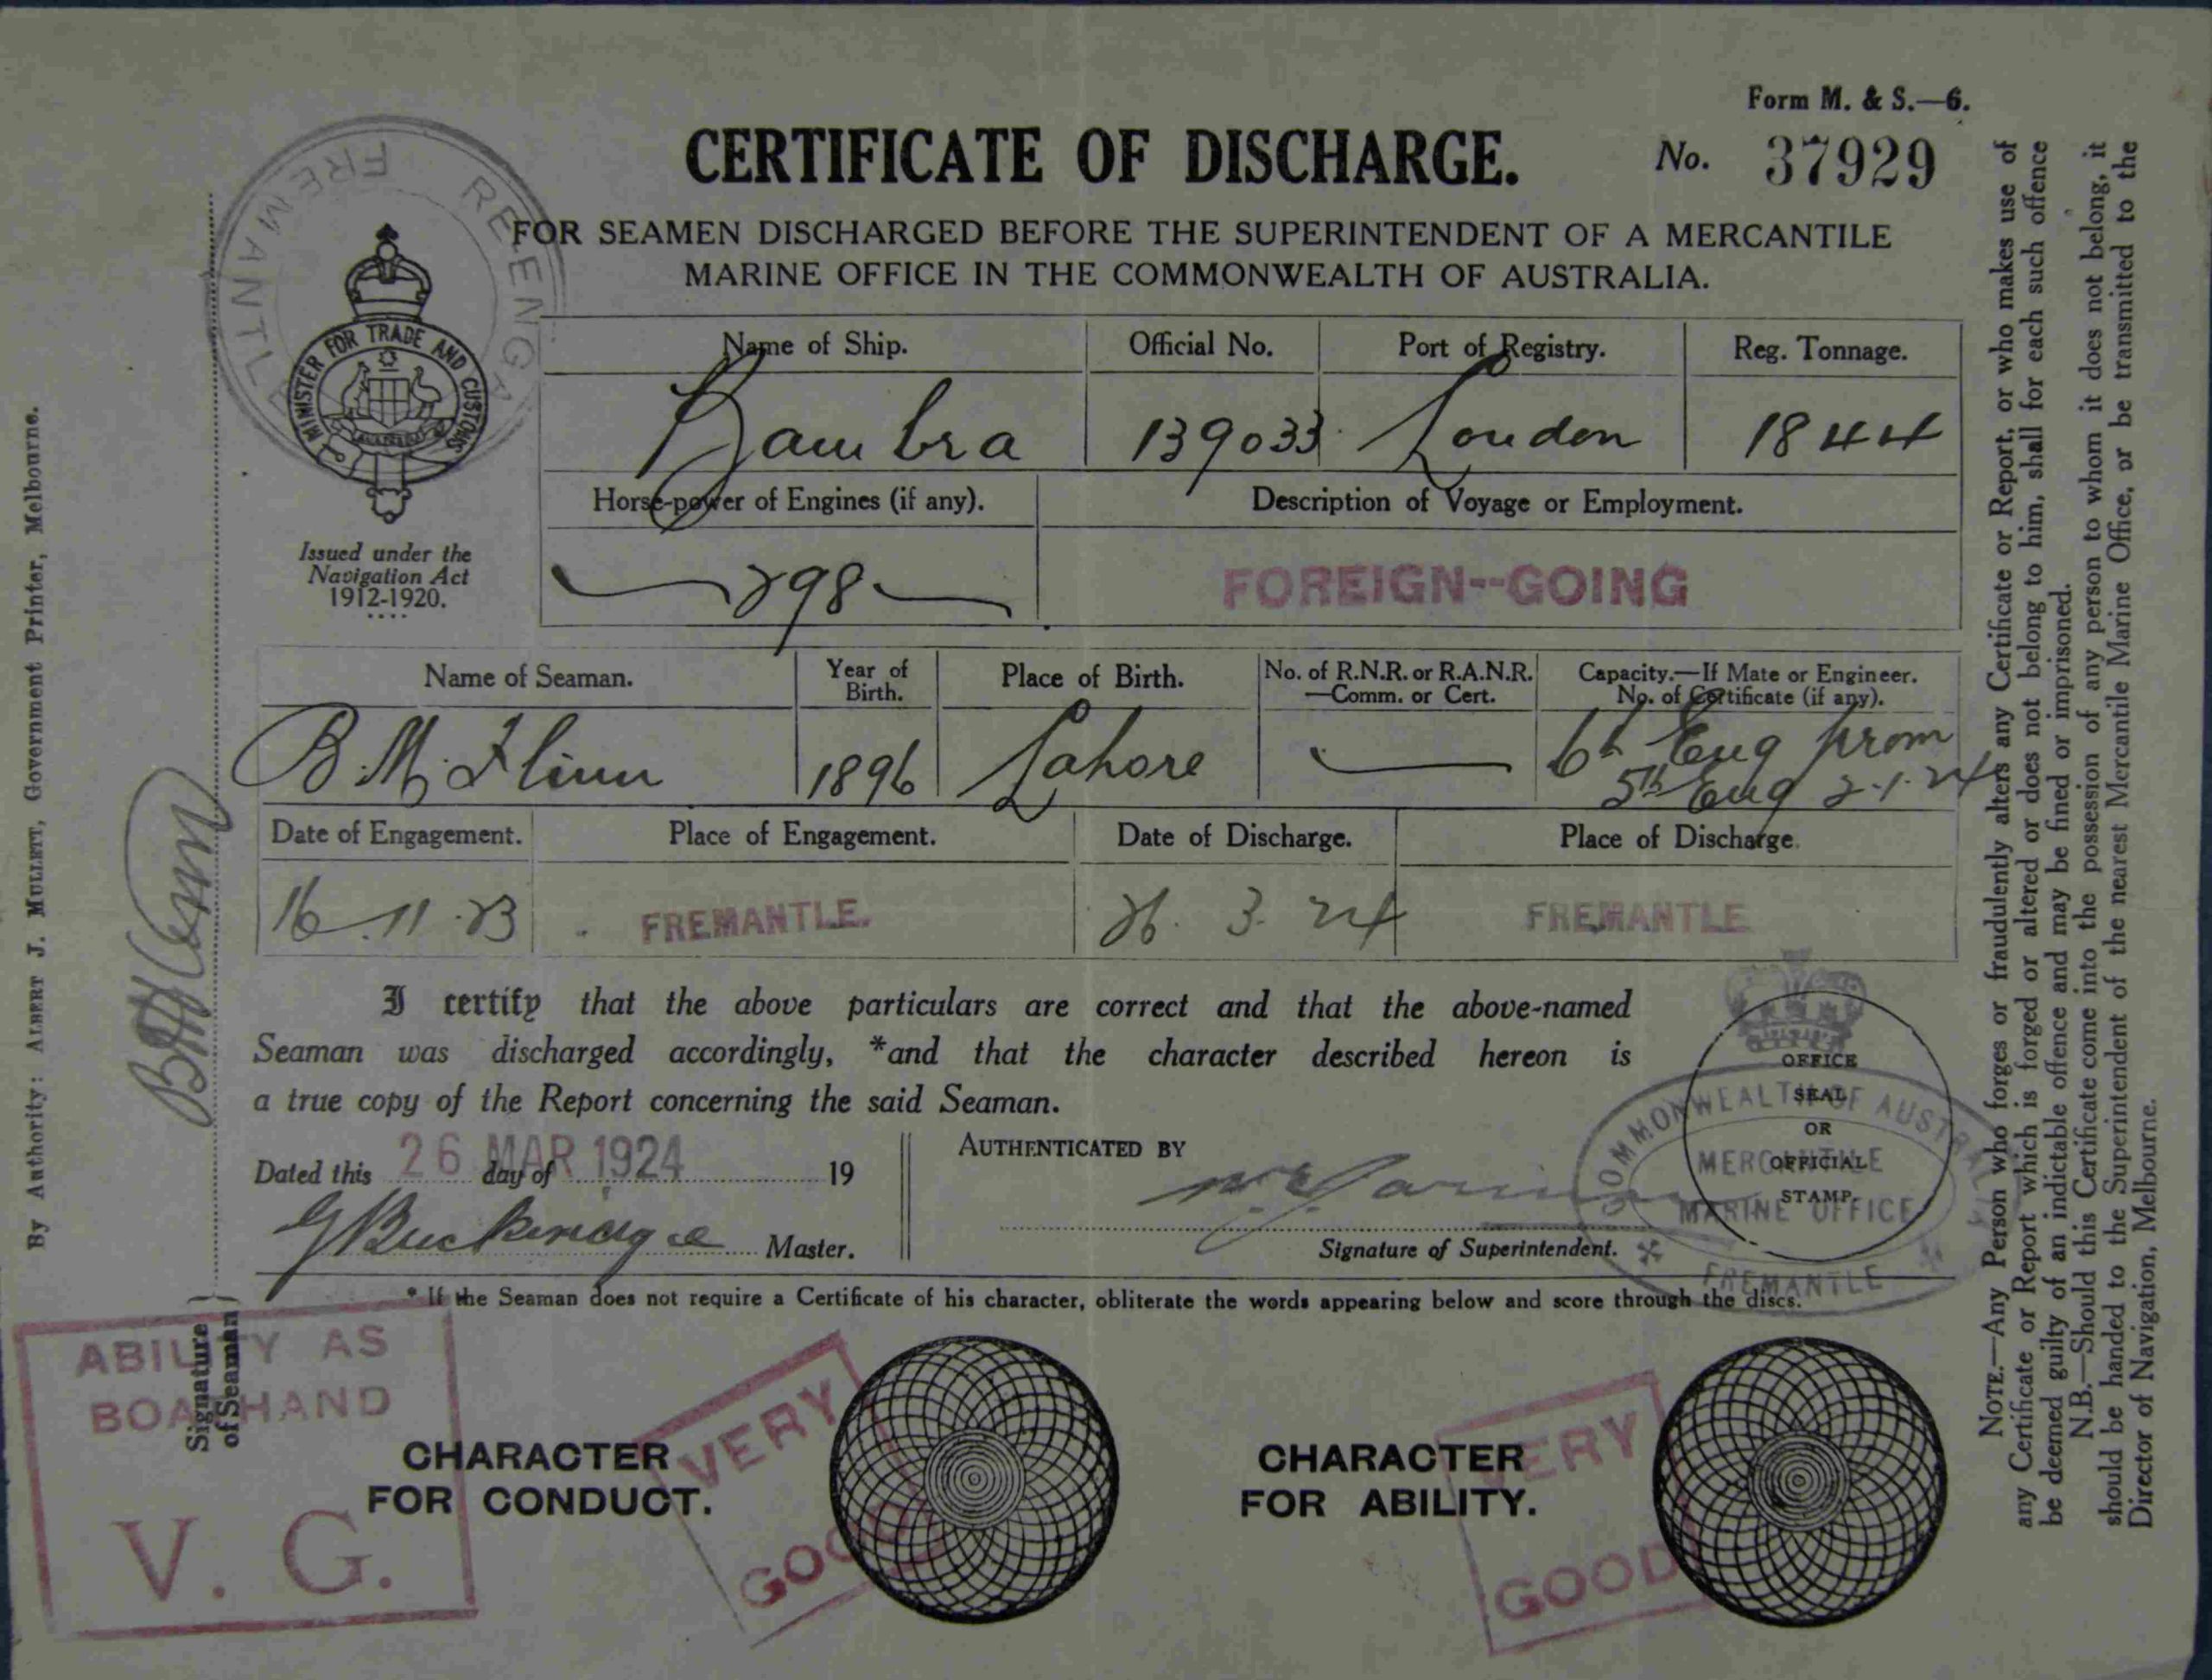 Form M. & S.—6.
CERTIFICATE OF DISCHARGE.
No. 37929
FOR SEAMEN DISCHARGED BEFORE THE SUPERINTENDENT OF A MERCANTILE
MARINE OFFICE IN THE COMMONWEALTH OF AUSTRALIA.
FREMANTLE
MINISTER FOR TRADE AND CUSTOMS
Issued under the
Navigation Act
1912-1920.
Name of Ship. Official No. Port of Registry. Reg. Tonnage.
Bambra 139033 London 1844
Horse-power of Engines (if any). Description of Voyage or Employment.
298 FOREIGN--GOING
Name of Seaman. Year of Birth. Place of Birth. No. of R.N.R. or R.A.N.R.—Comm. or Cert. Capacity.—If Mate or Engineer. No. of Certificate (if any).
B. M. Flinn 1896 Lahore 6th Eng from
5th Eng 2-1-24
Date of Engagement. Place of Engagement. Date of Discharge. Place of Discharge.
16.11.23 FREMANTLE. 26. 3. 24 FREMANTLE
I certify that the above particulars are correct and that the above-named
Seaman was discharged accordingly, *and that the character described hereon is
a true copy of the Report concerning the said Seaman.
Dated this 26 day of MAR 1924 19
Master.
AUTHENTICATED BY
Signature of Superintendent.
OFFICE
SEAL
OR
OFFICIAL
STAMP.
COMMONWEALTH OF AUSTRALIA
MERCANTILE
MARINE OFFICE
FREMANTLE
* If the Seaman does not require a Certificate of his character, obliterate the words appearing below and score through the discs.
ABILITY AS
BOATHAND
V. G.
CHARACTER
FOR CONDUCT.
VERY
GOOD
CHARACTER
FOR ABILITY.
VERY
GOOD
Signature
of Seaman
By Authority: ALBERT J. MULLETT, Government Printer, Melbourne.
NOTE.—Any Person who forges or fraudulently alters any Certificate or Report, or who makes use of
any Certificate or Report which is forged or altered or does not belong to him, shall for each such offence
be deemed guilty of an indictable offence and may be fined or imprisoned.
N.B.—Should this Certificate come into the possession of any person to whom it does not belong, it
should be handed to the Superintendent of the nearest Mercantile Marine Office, or be transmitted to the
Director of Navigation, Melbourne.